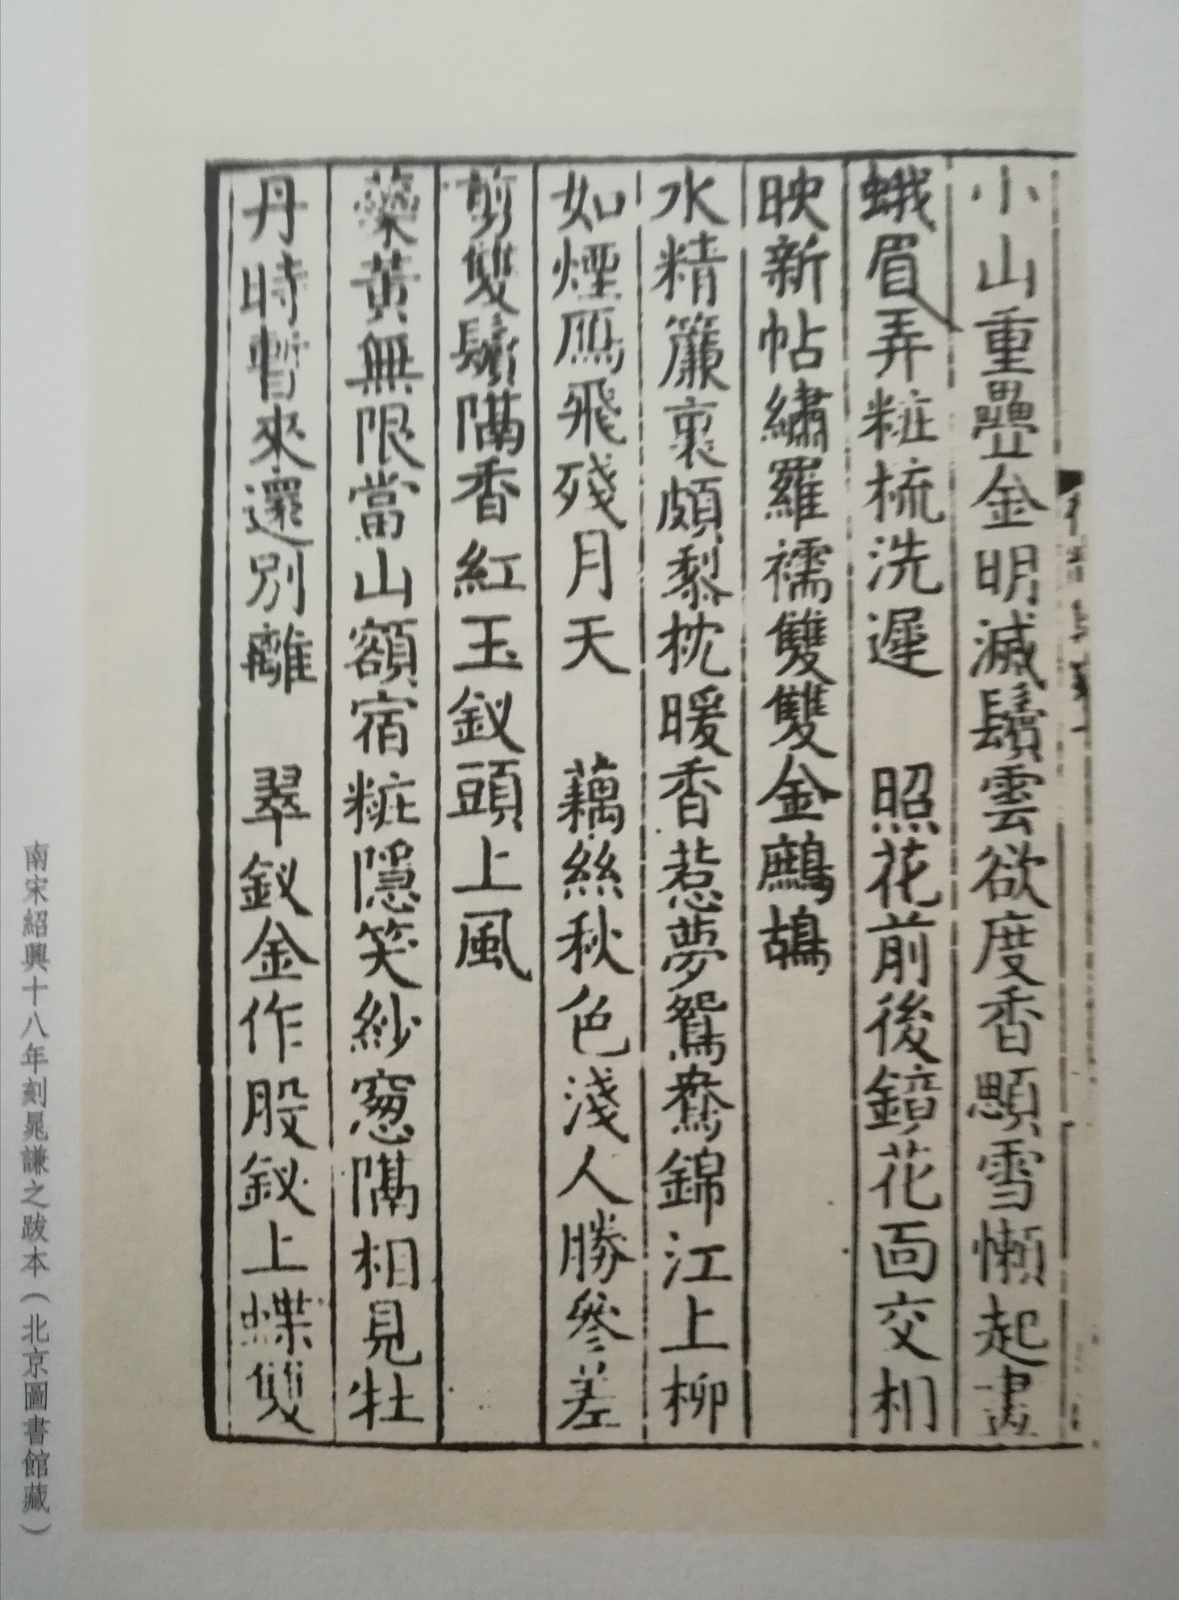 小山重疊金明滅鬢雲欲度香顋雪懶起畫
蛾眉弄粧梳洗遲　照花前後鏡花面交相
映新帖繡羅襦雙雙金鷓鴣
水精簾裏頗黎枕暖香惹夢鴛鴦錦江上柳
如煙鴈飛殘月天　藕絲秋色淺人勝參差
剪雙鬢隔香紅玉釵頭上風
蘂黃無限當山額宿粧隱笑紗窻隔相見牡
丹時暫來還別離　翠釵金作股釵上蝶雙
南宋紹興十八年刻晁謙之跋本（北京圖書館藏）